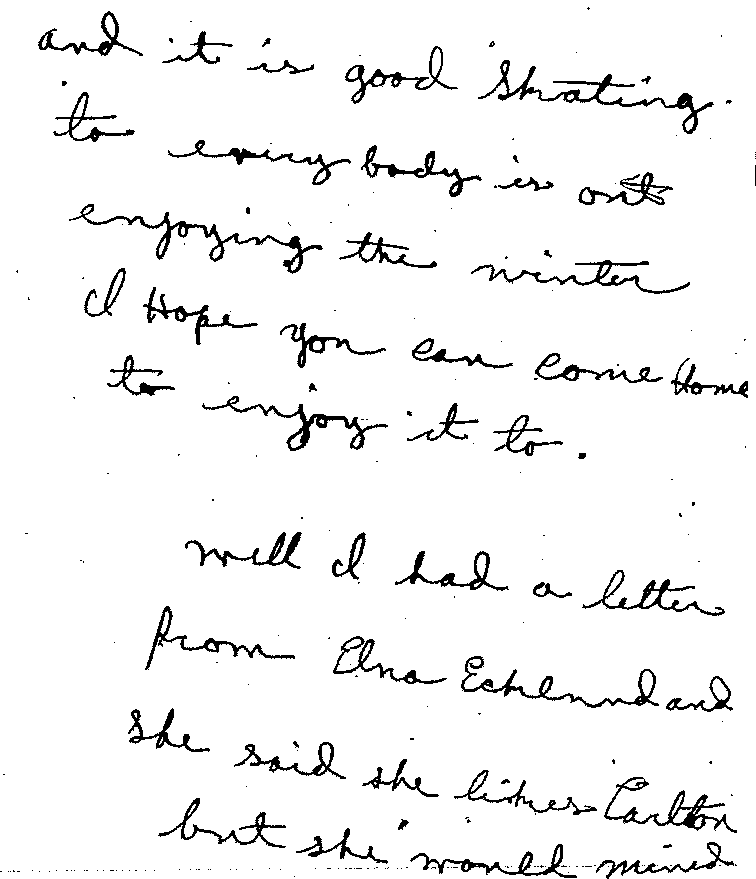 and it is good skating.
to every body is out
enjoying the winter
I Hope you can come Home
to enjoy it to.
well I had a letter
from Elna and
she said she likes Carlton
but she would mind